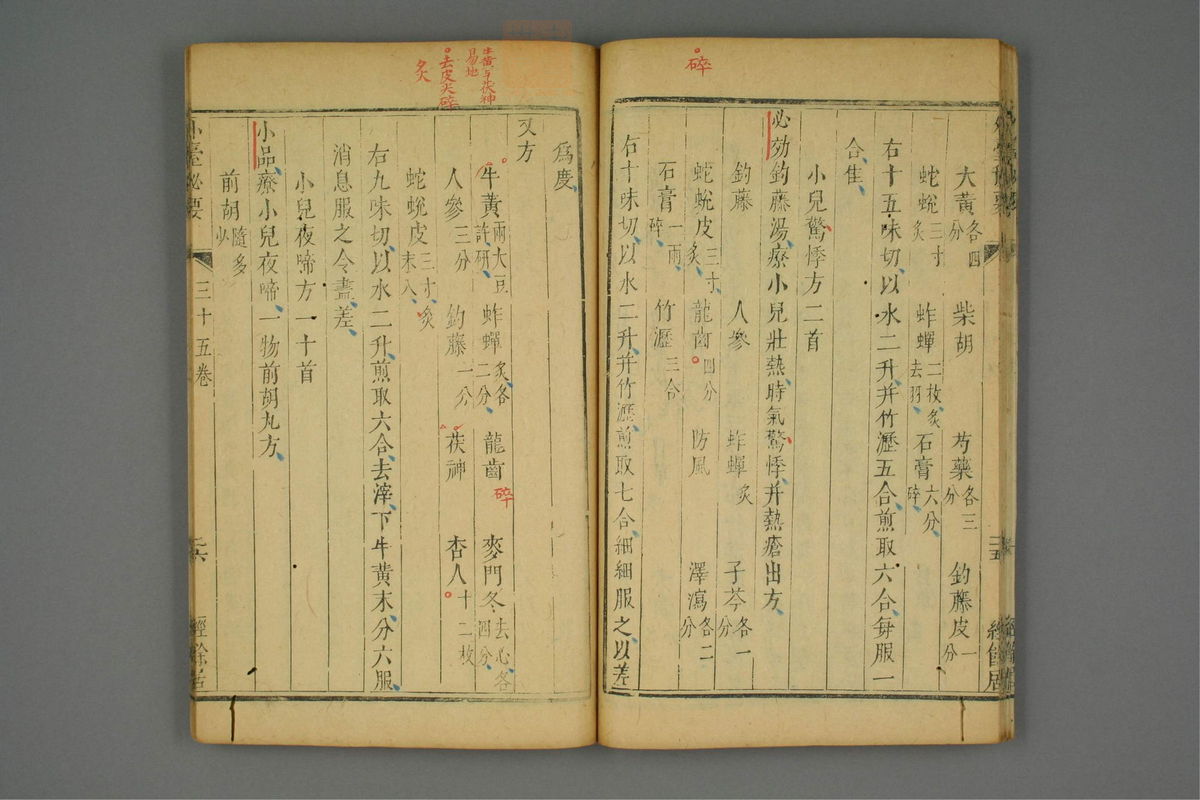 碎
大黃各四分 柴胡 芍藥各三分 釣藤皮一分
蛇蛻三寸炙 蚱蟬二枚炙去羽 石膏六分碎
右十五味切以水二升并竹瀝五合煎取六合每服一
合佳
小兒驚悸方二首
必効釣藤湯療小兒壯熱時氣驚悸并熱瘡出方
釣藤 人參 蚱蟬炙 子芩各一分
蛇蛻皮三寸炙 龍齒四分 防風 澤瀉各二分
石膏一兩碎 竹瀝三合
右十味切以水二升并竹瀝煎取七合細細服之以差
為度
又方
牛黃兩大豆許研 蚱蟬炙各二分 龍齒 麥門冬去心各四分
人參三分 釣藤一分 茯神 杏人十二枚
蛇蛻皮三寸炙末入
右九味切以水二升煎取六合去滓下牛黃末分六服
消息服之令盡差
小兒夜啼方一十首
小品療小兒夜啼一物前胡丸方
前胡隨多少
三十五卷
碎
去皮尖碎
炙